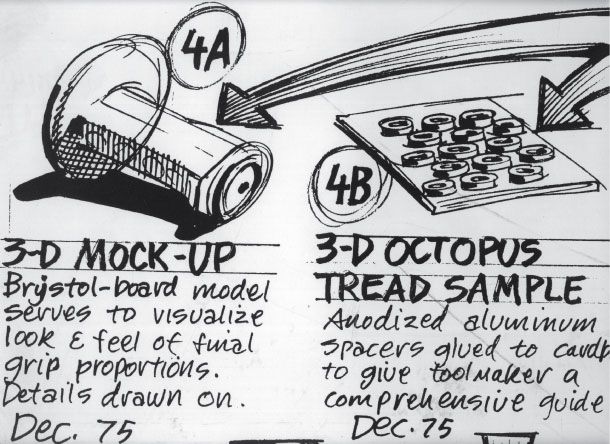 4A
3-D MOCK-UP
Bristol-board model
serves to visualize
look & feel of final
grip proportions.
Details drawn on.
Dec. 75
4B
3-D OCTOPUS
TREAD SAMPLE
Anodized aluminum
spacers glued to cardb
to give toolmaker a
comprehensive guide
Dec. 75